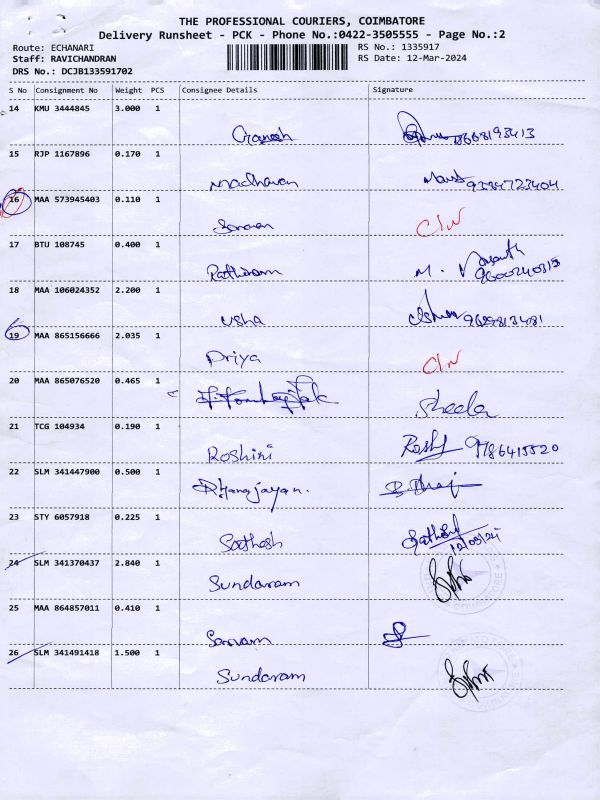 THE PROFESSIONAL COURIERS, COIMBATORE
Delivery Runsheet - PCK - Phone No.:0422-3505555 - Page No.:2
Route: ECHANARI
RS No.: 1335917
Staff: RAVICHANDRAN
RS Date: 12-Mar-2024
DRS No.: DCJB133591702
S No Consignment No Weight PCS Consignee Details Signature
14 KMU 3444845 3.000 1
Ganesh
15 RJP 1167896 0.170 1
Madhavan 9384723404
16 MAA 573945403 0.110 1
Saravan
17 BTU 108745 0.400 1
Rathiram M.
18 MAA 106024352 2.200 1
Usha 9629813481
19 MAA 865156666 2.035 1
Priya
20 MAA 865076520 0.465 1
Sheela
21 TCG 104934 0.190 1
Roshini 9786415520
22 SLM 341447900 0.500 1
Dhanajayan.
23 STY 6057918 0.225 1
Sathosh 12/03/24
24 SLM 341370437 2.840 1
Sundaram
25 MAA 864857011 0.410 1
26 SLM 341491418 1.500 1
Sundaram